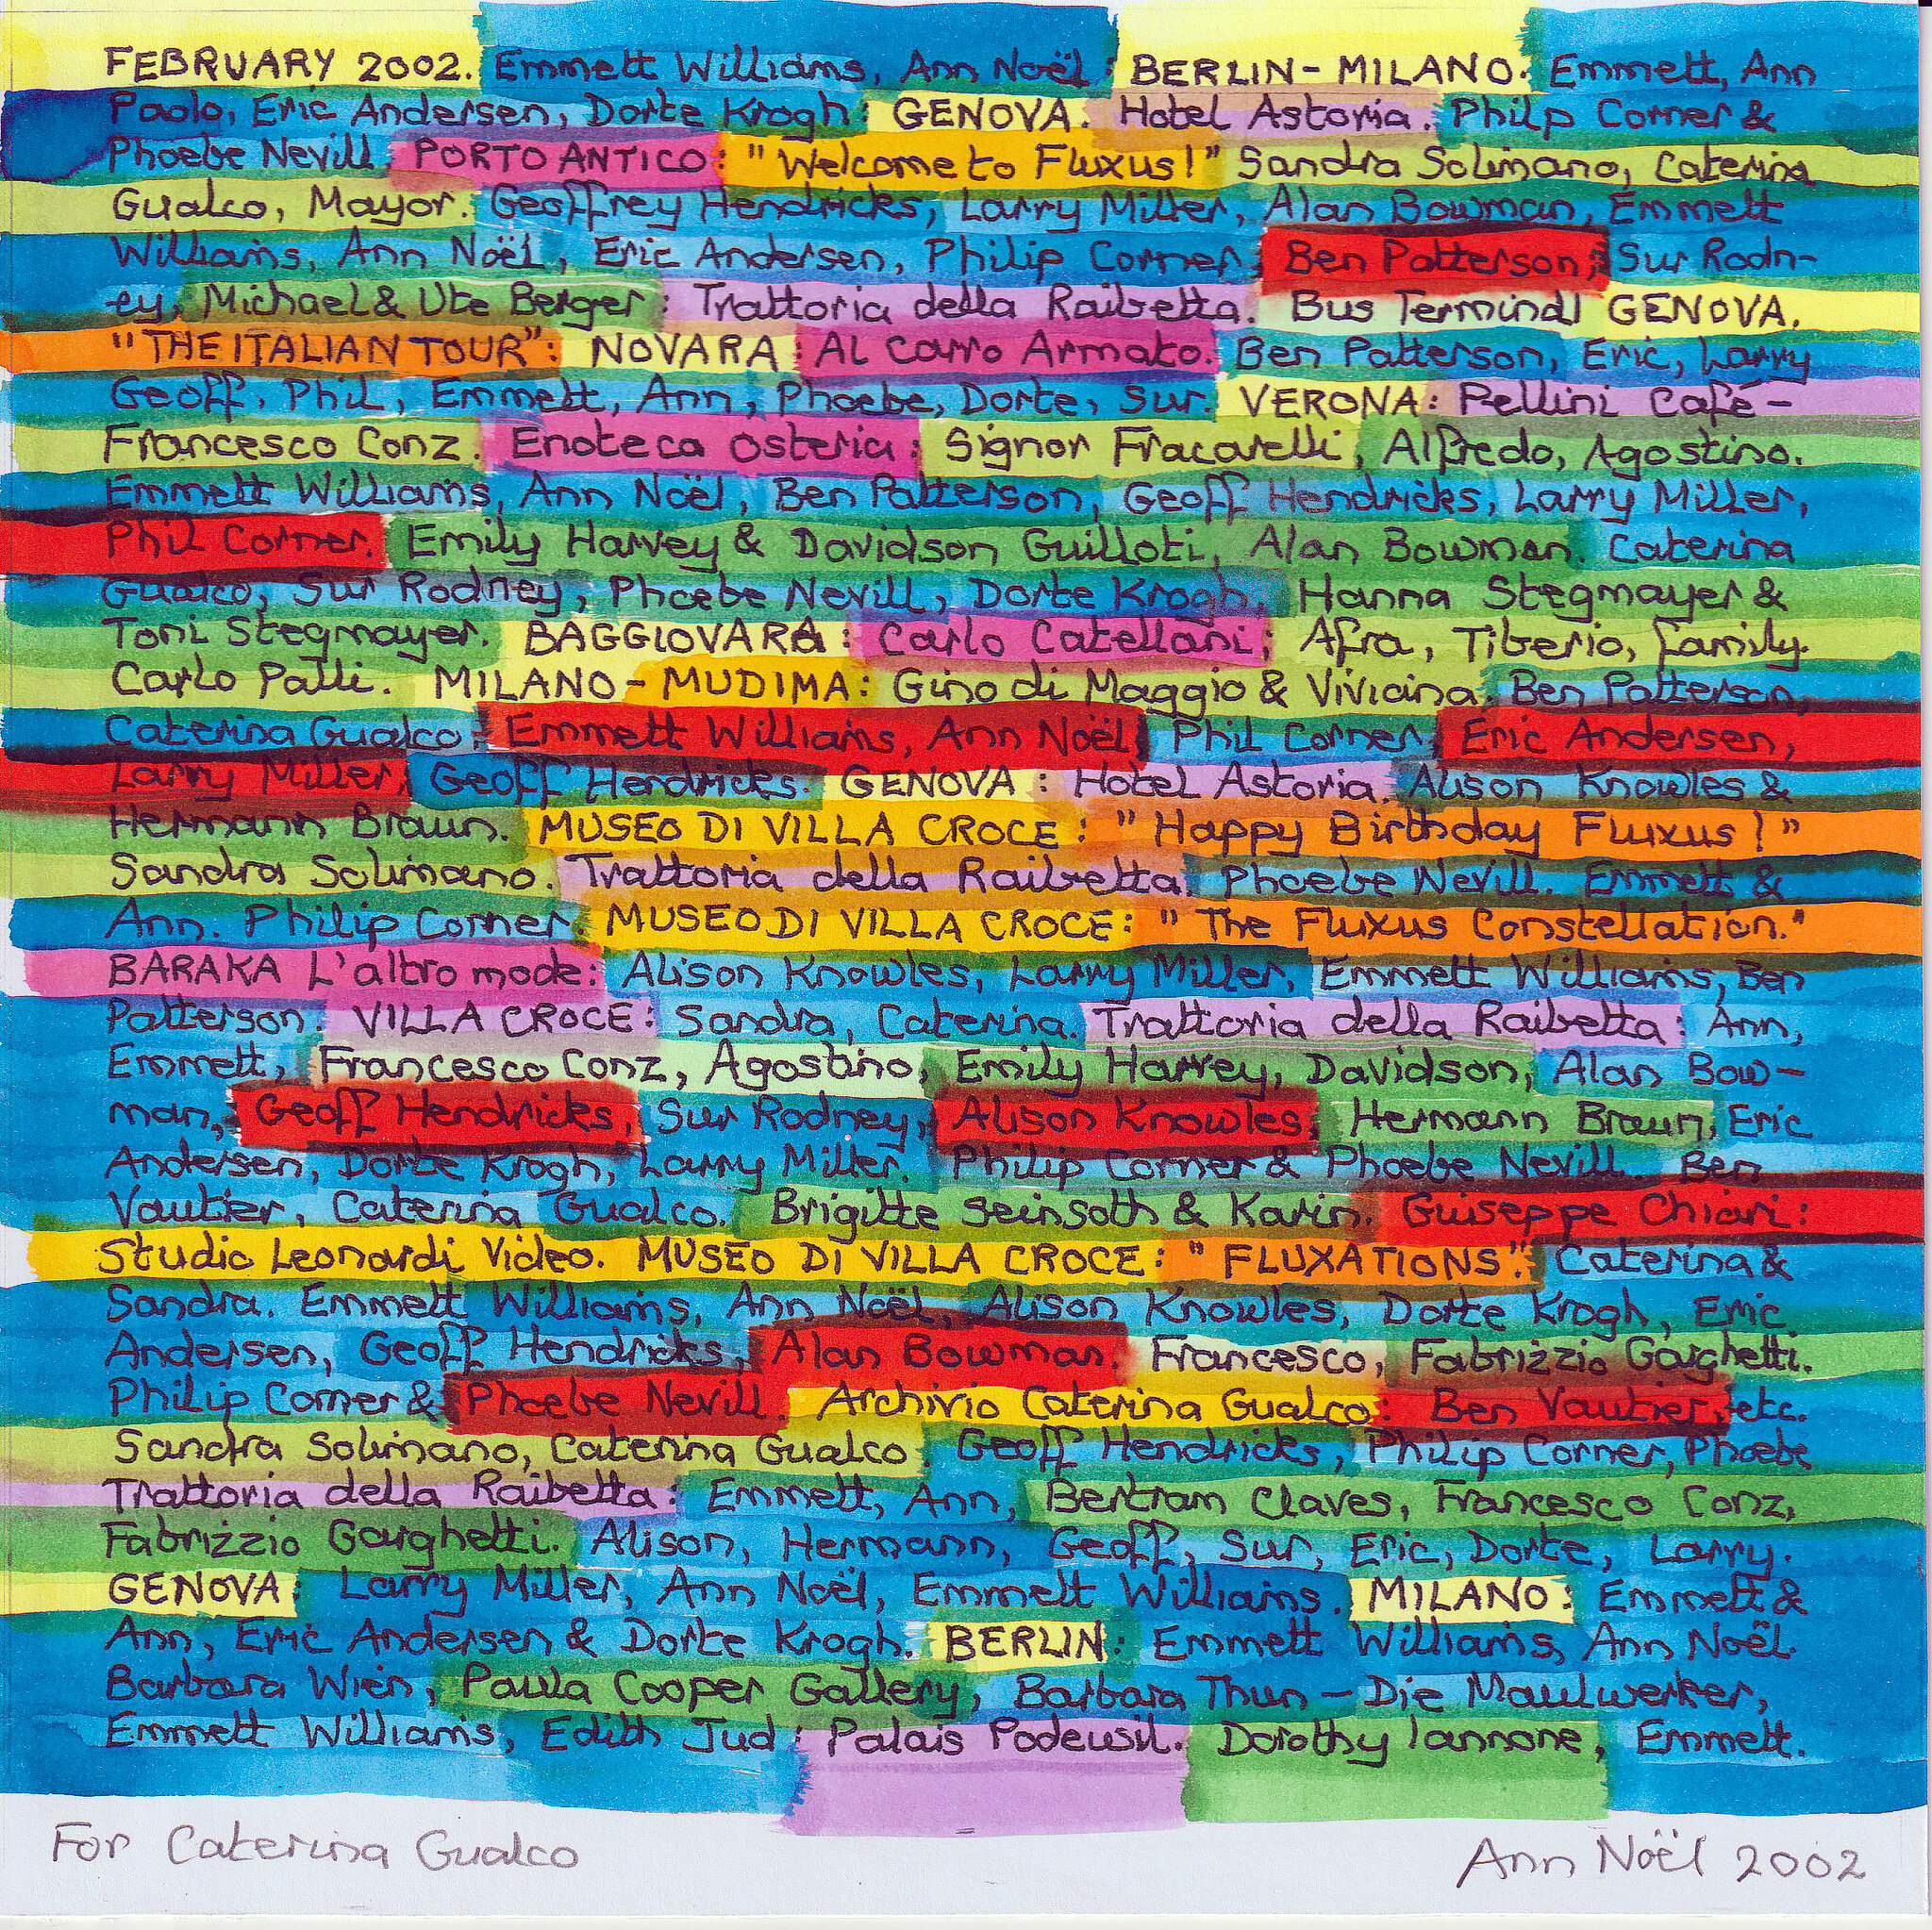 FEBRUARY 2002. Emmett Williams, Ann Noël: BERLIN - MILANO. Emmett, Ann
Paolo, Eric Andersen, Dorte Krogh: GENOVA. Hotel Astoria. Philp Corner &
Phoebe Nevill. PORTO ANTICO: "Welcome to Fluxus!" Sandra Solimano, Caterina
Gualco, Mayor. Geoffrey Hendricks, Larry Miller, Alan Bowman, Emmett
Williams, Ann Noël, Eric Andersen, Philip Corner, Ben Patterson, Sur Rodn-
ey, Michael & Ute Berger: Trattoria della Raibetta. Bus Terminal GENOVA.
"THE ITALIAN TOUR": NOVARA: AL Carro Armato. Ben Patterson, Eric, Larry
Geoff, Phil, Emmett, Ann, Phoebe, Dorte, Sur. VERONA: Pellini Café-
Francesco Conz. Enoteca Osteria: Signor Fracarelli, Alfredo, Agostino.
Emmett Williams, Ann Noël, Ben Patterson, Geoff Hendricks, Larry Miller,
Phil Corner. Emily Harvey & Davidson Guilloti, Alan Bowman. Caterina
Gualco, Sur Rodney, Phoebe Nevill, Dorte Krogh. Hanna Stegmayer &
Toni Stegmayer. BAGGIOVARA: Carlo Catellani; Afra, Tiberio, family.
Carlo Palli. MILANO - MUDIMA: Gino di Maggio & Viviana. Ben Patterson,
Caterina Gualco, Emmett Williams, Ann Noël, Phil Corner, Eric Andersen,
Larry Miller, Geoff Hendricks. GENOVA: Hotel Astoria. Alison Knowles &
Hermann Braun. MUSEO DI VILLA CROCE: "Happy Birthday Fluxus!"
Sandra Solimano. Trattoria della Raibetta. Phoebe Nevill. Emmett &
Ann. Philip Corner. MUSEO DI VILLA CROCE: "The Fluxus Constellation."
BARAKA L'altro mode: Alison Knowles, Larry Miller, Emmett Williams, Ben
Patterson. VILLA CROCE: Sandra, Caterina. Trattoria della Raibetta: Ann,
Emmett, Francesco Conz, Agostino, Emily Harvey, Davidson, Alan Bow-
man, Geoff Hendricks, Sur Rodney, Alison Knowles, Hermann Braun, Eric
Andersen, Dorte Krogh, Larry Miller. Philip Corner & Phoebe Nevill. Ben
Vautier, Caterina Gualco. Brigitte Seinsoth & Karin. Guiseppe Chiari:
Studio Leonardi Video. MUSEO DI VILLA CROCE: "FLUXATIONS". Caterina &
Sandra. Emmett Williams, Ann Noël, Alison Knowles, Dorte Krogh, Eric
Andersen, Geoff Hendricks, Alan Bowman. Francesco, Fabrizzio Garghetti.
Philip Corner & Phoebe Nevill. Archivio Caterina Gualco: Ben Vautier, etc.
Sandra Solimano, Caterina Gualco. Geoff Hendricks, Philip Corner, Phoebe
Trattoria della Raibetta: Emmett, Ann, Bertram Claves, Francesco Conz,
Fabrizzio Garghetti. Alison, Hermann, Geoff, Sur, Eric, Dorte, Larry.
GENOVA: Larry Miller, Ann Noël, Emmett Williams. MILANO: Emmett &
Ann, Eric Andersen & Dorte Krogh. BERLIN: Emmett Williams, Ann Noël.
Barbara Wien, Paula Cooper Gallery, Barbara Thun - Die Maulwerker,
Emmett Williams, Edith Jud: Palais Podewsil. Dorothy Iannone, Emmett.
For Caterina Gualco
Ann Noël 2002